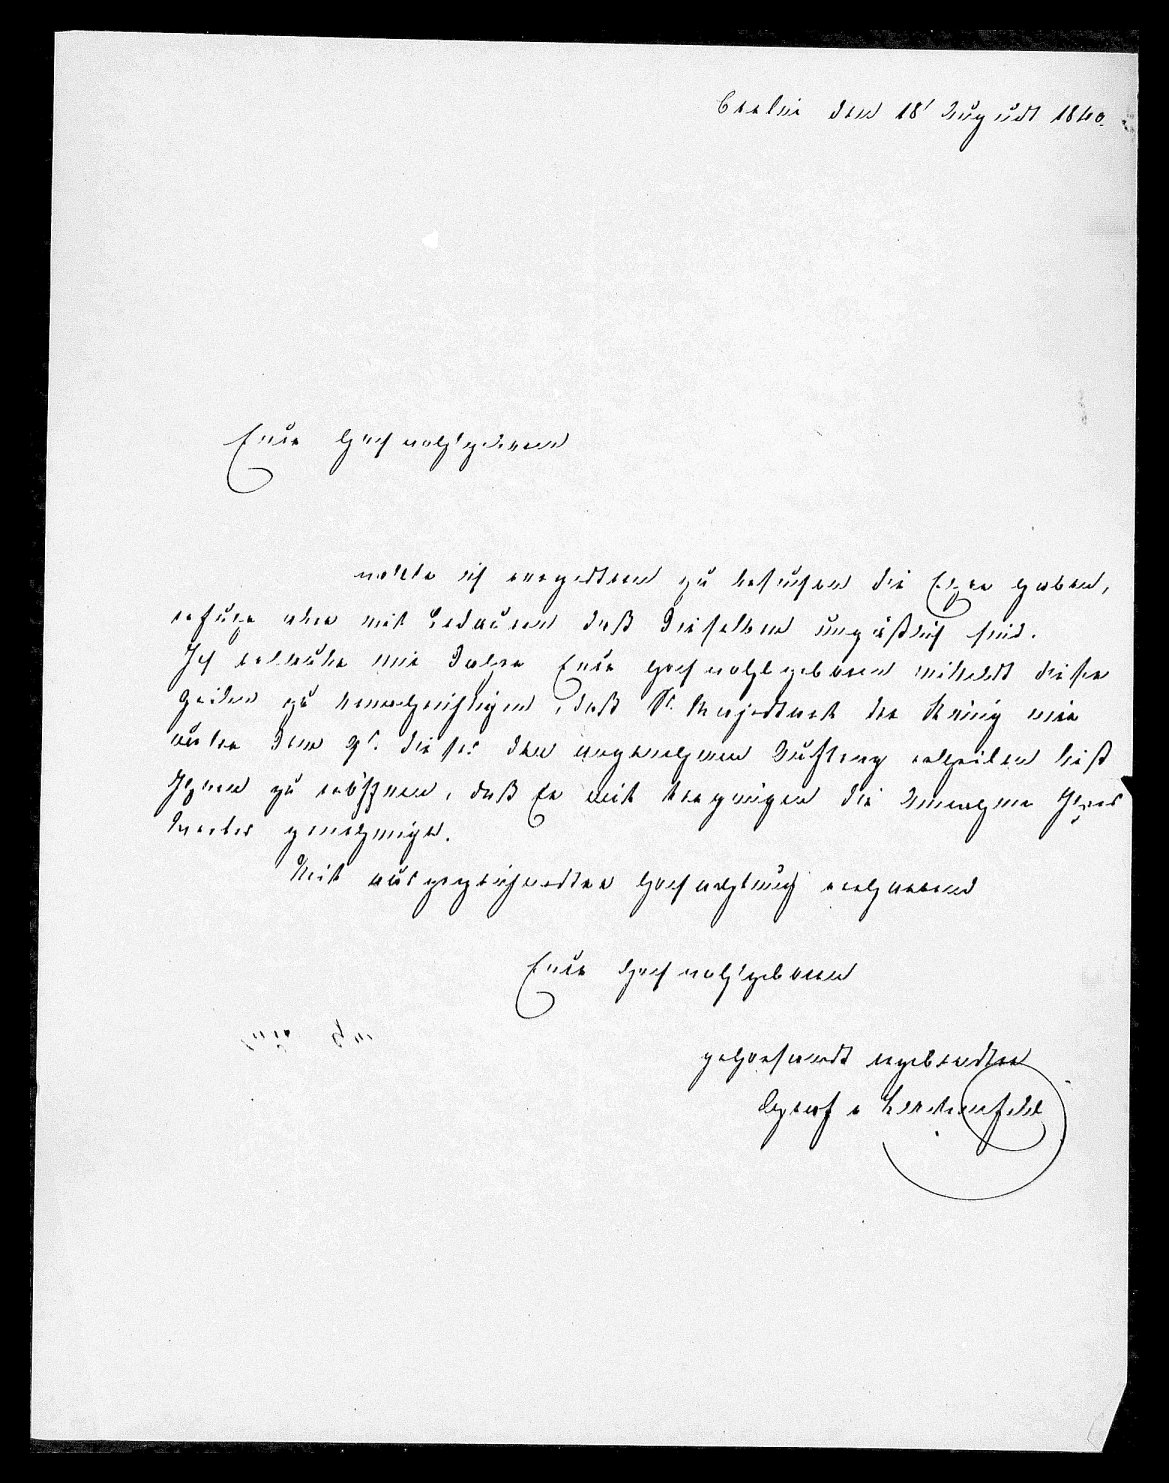 Berlin den 18t August 1840.
Euer Hochwohlgeboren
wollte ich vorgestern zu besuchen die Ehre haben,
erfuhr aber mit Bedauern daß Dieselben unpäßlich sind.
Ich erlaube mir daher Euer Hochwohlgeboren mittelst dieser
Zeilen zu benachrichtigen, daß Sr. Majestaet der König mir
unter dem 9t. dieses den angenehmen Auftrag ertheilen ließ
Ihnen zu eröffnen, daß Er mit Vergnügen die Annahme Ihres
Werkes genehmige.
Mit ausgezeichnetster Hochachtung verharrend
Euer Hochwohlgeboren
gehorsamst ergebenster
Graf v Lerchenfeld